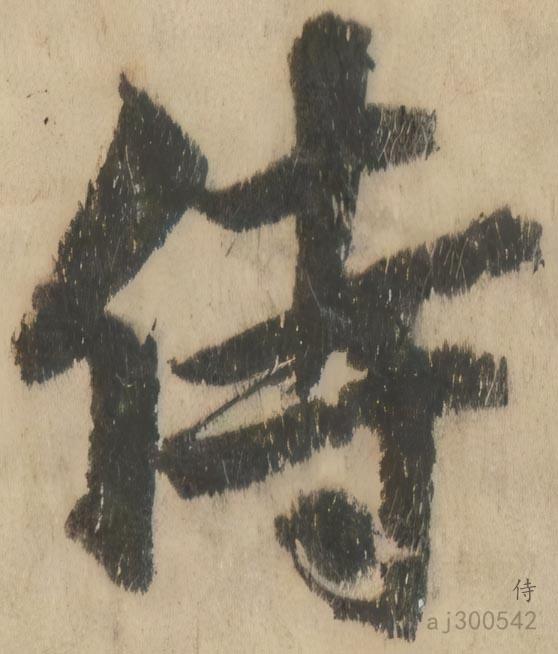 侍
侍
aj300542